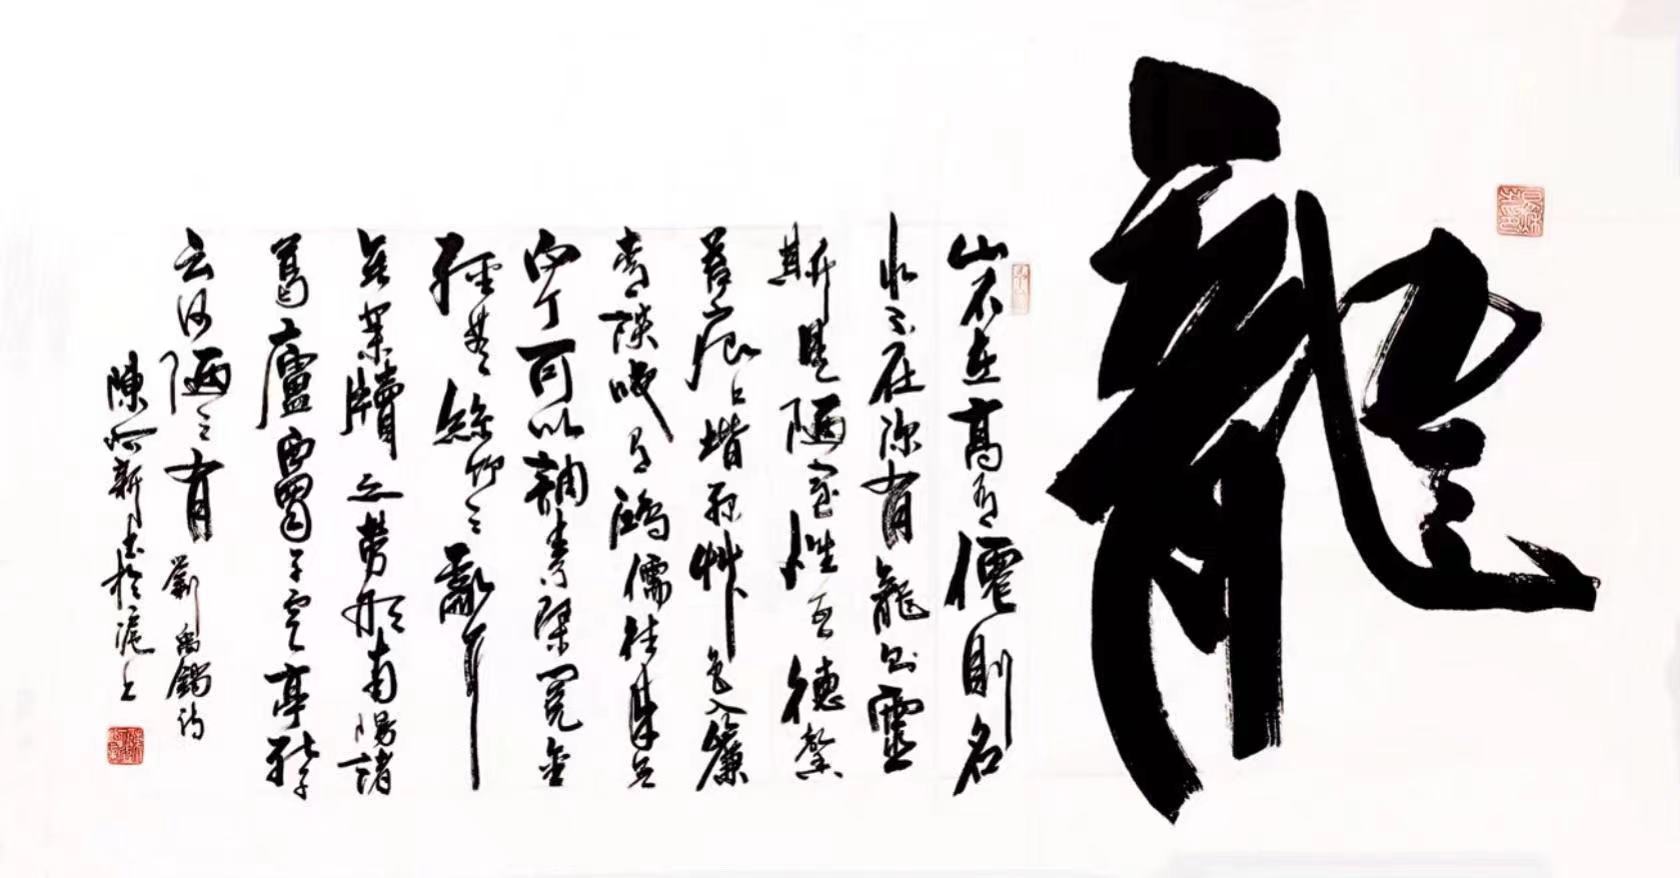 龍
山不在高有僊則名
水不在深有龍則靈
斯是陋室惟吾德馨
苔痕上堦綠艸色入簾
青談咲有鴻儒往來無
白丁可以調素琴閱金
經無絲竹之亂耳
無案牘之勞形南陽諸
葛廬西蜀子雲亭孔子
云何陋之有 劉禹錫詩
陳 新書於滬上